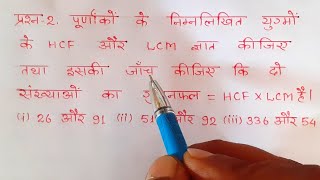 प्रश्न-2. पूर्णांकों के निम्नलिखित युग्मों
के HCF और LCM ज्ञात कीजिए
तथा इसकी जाँच कीजिए कि दो
संख्याओं का = HCF × LCM है।
(i) 26 और 91 (ii) 51 92 (iii) 336 और 54